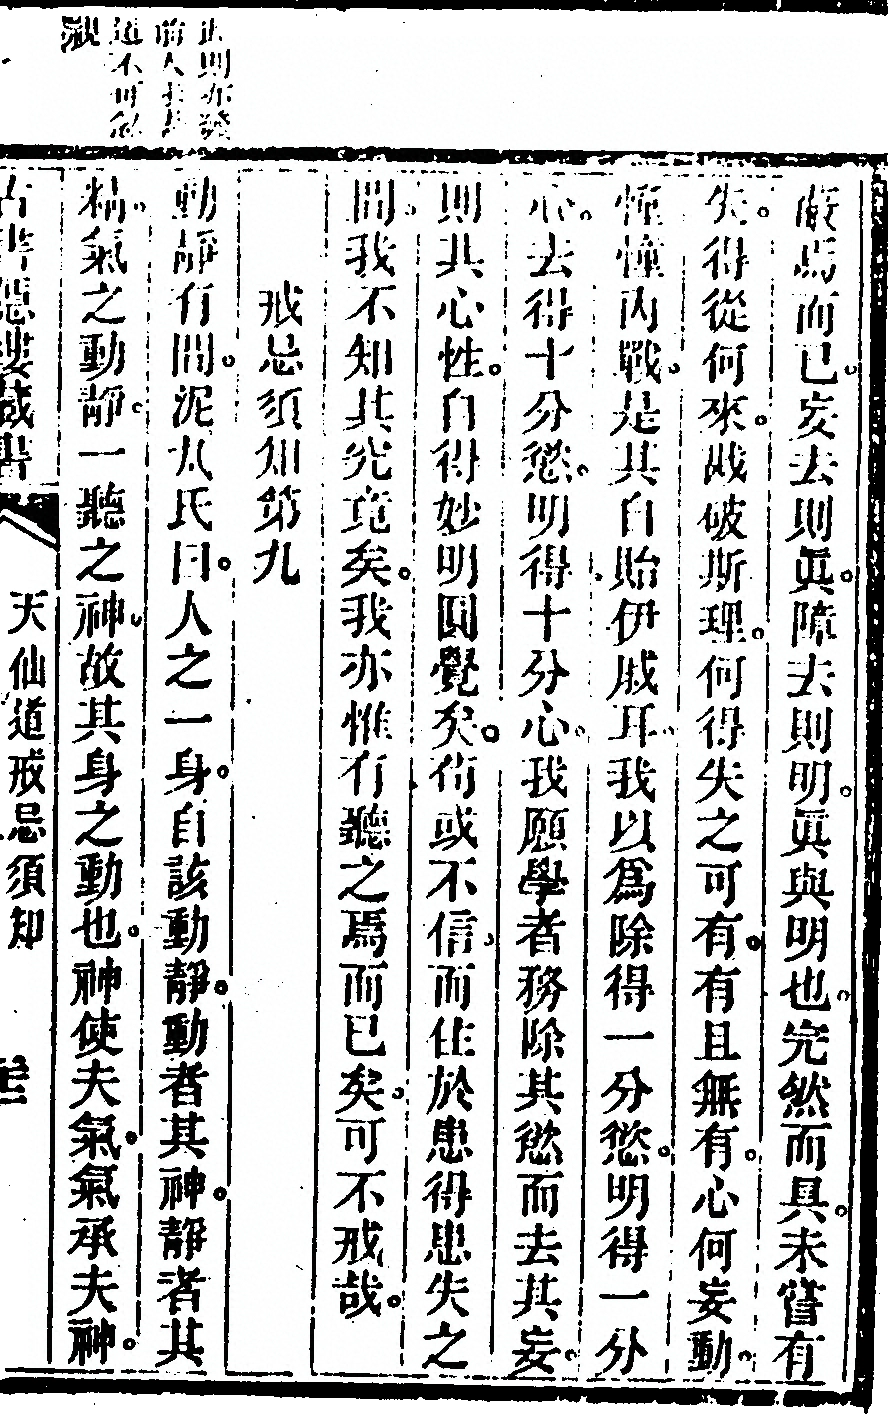 則亦
前人
道不可忽
觀
蔽焉而已妄去則眞障去則明眞與明也完然而具未嘗有
失得從何來戡破斯理何得失之可有有且無有心何妄動
憧憧內戰是其自貽伊戚耳我以爲除得一分慾明得一分
心去得十分慾明得十分心我願學者務除其慾而去其妄
則其心性自得妙明圓覺矣倘或不信而住於患得患失之
間我不知其究竟矣我亦惟有聽之焉而已矣可不戒哉
戒忌須知第九
動靜有間泥丸氏曰人之一身自該動靜動者其神靜者其
精氣之動靜一聽之神故其身之動也神使夫氣氣承夫神
古書隱樓藏書
天仙道戒忌須知